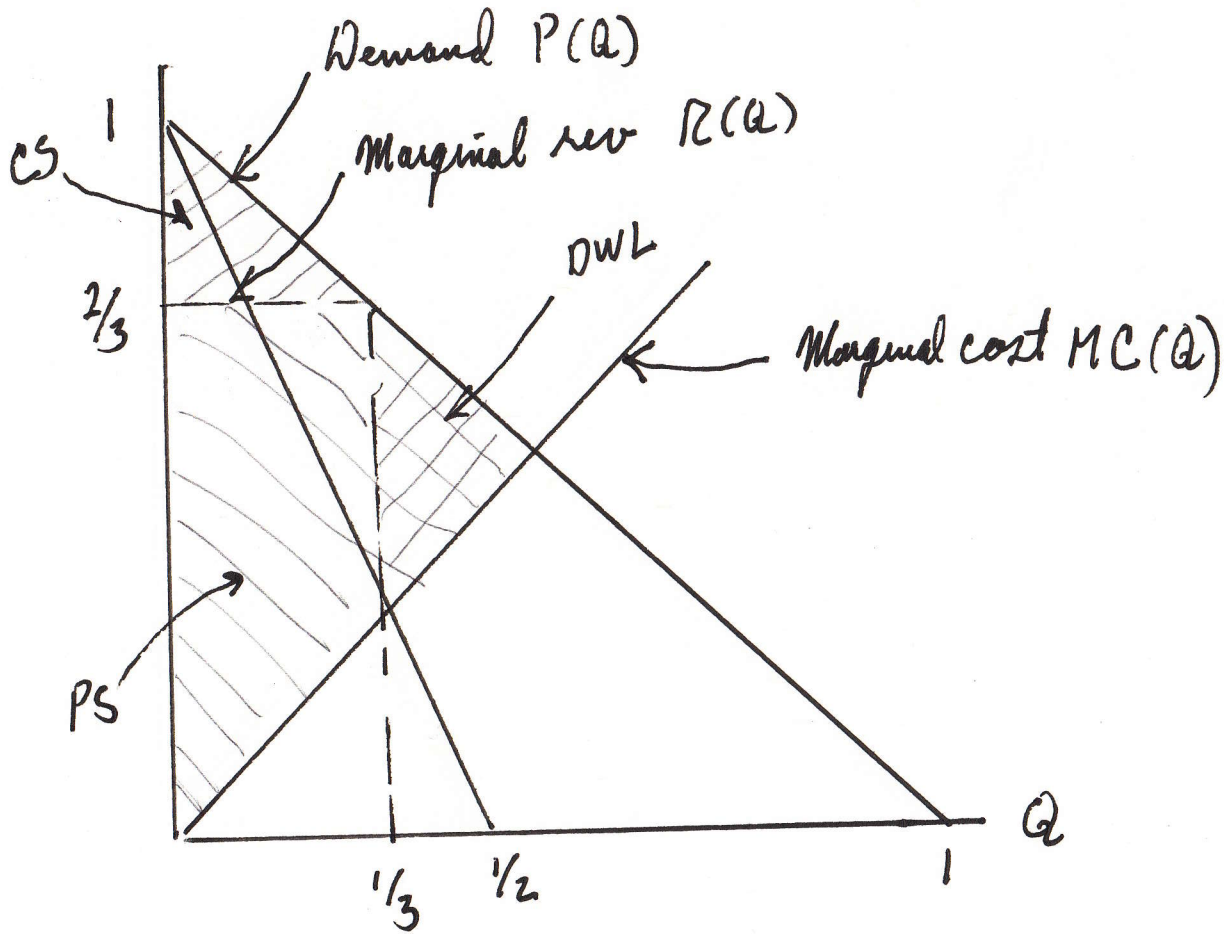 Demand P(Q)
1
Marginal rev R(Q)
CS
DWL
2/3
Marginal cost MC(Q)
PS
Q
1/3
1/2
1